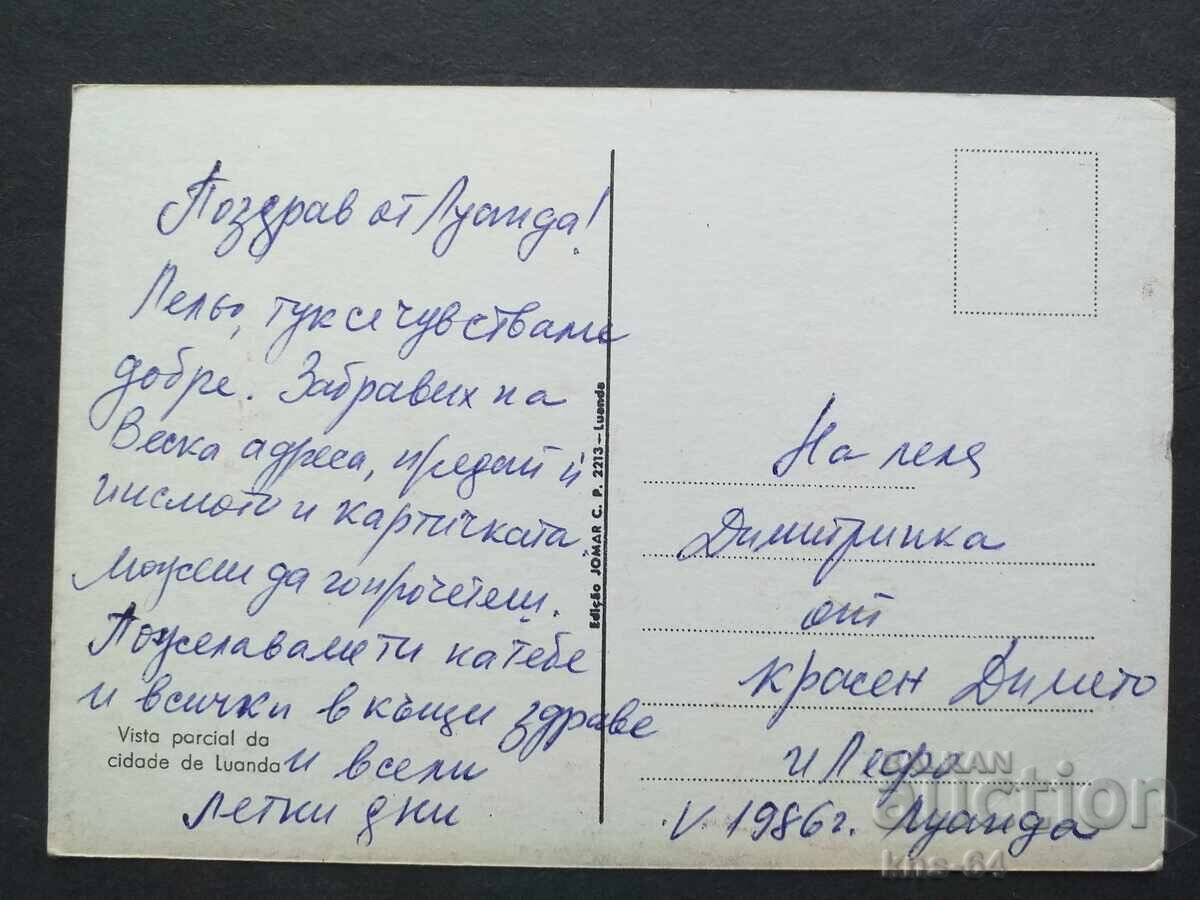 Поздрав от Луанда!
Лельо, тук се чувстваме
добре. Забравих на
Веска адреса, предай ѝ
писмото и картичката.
Можеш да го прочетеш.
Пожелавам ти на тебе
и всички в къщи здраве
и весели
летни дни
Vista parcial da
cidade de Luanda
Edição JOMAR C. P. 2213 — Luanda
На леля
Димитринка
от
Красен Димето
и Пефо
V. 1986 г. Луанда
BALKAN
auction
kns-64